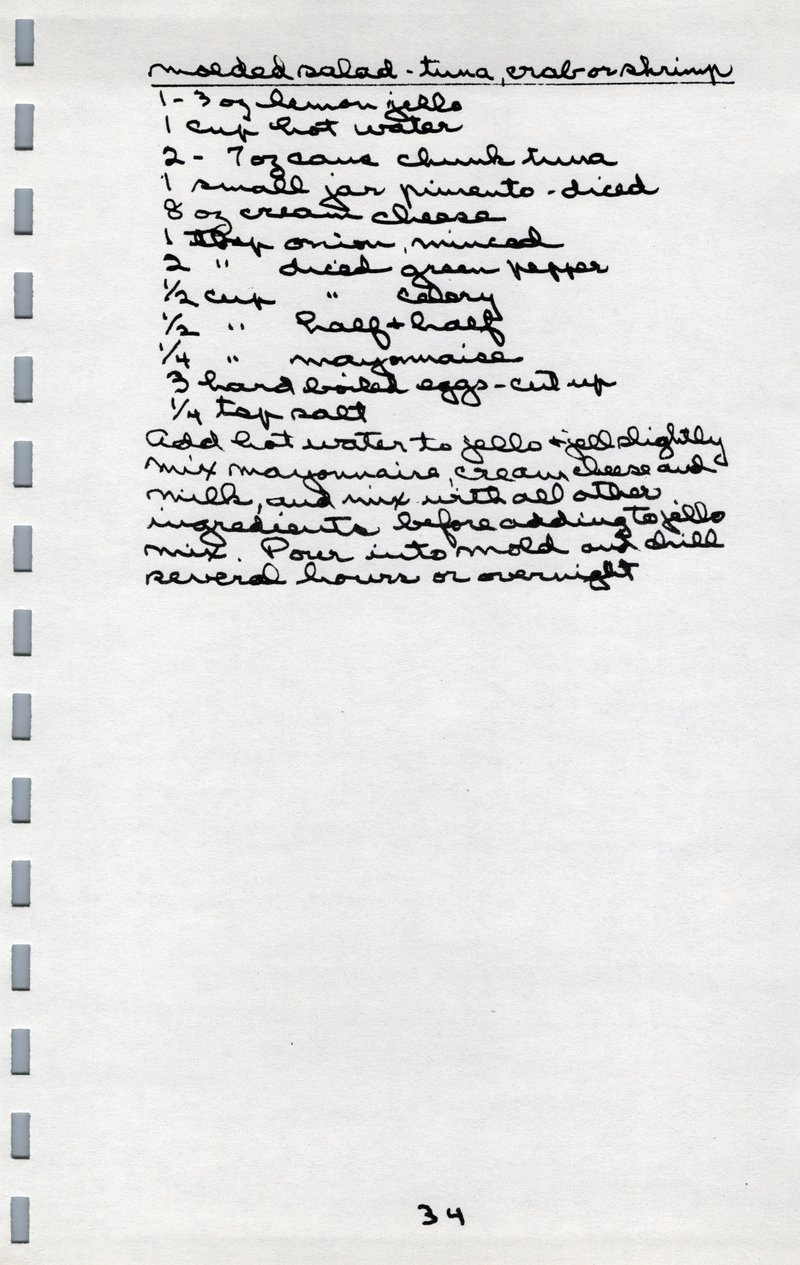 molded salad - tuna, crab or shrimp
1 - 3 oz lemon jello
1 cup hot water
2 - 7 oz cans chunk tuna
1 small jar pimento - diced
8 oz cream cheese
1 tbsp onion, minced
2 " diced green pepper
1/2 cup " celery
1/2 " half + half
1/4 " mayonnaise
3 hard boiled eggs - cut up
1/4 tsp salt
Add hot water to jello + jell slightly
mix mayonnaise, cream cheese and
milk, and mix with all other
ingredients before adding to jello
mix. Pour into mold and chill
several hours or overnight
34